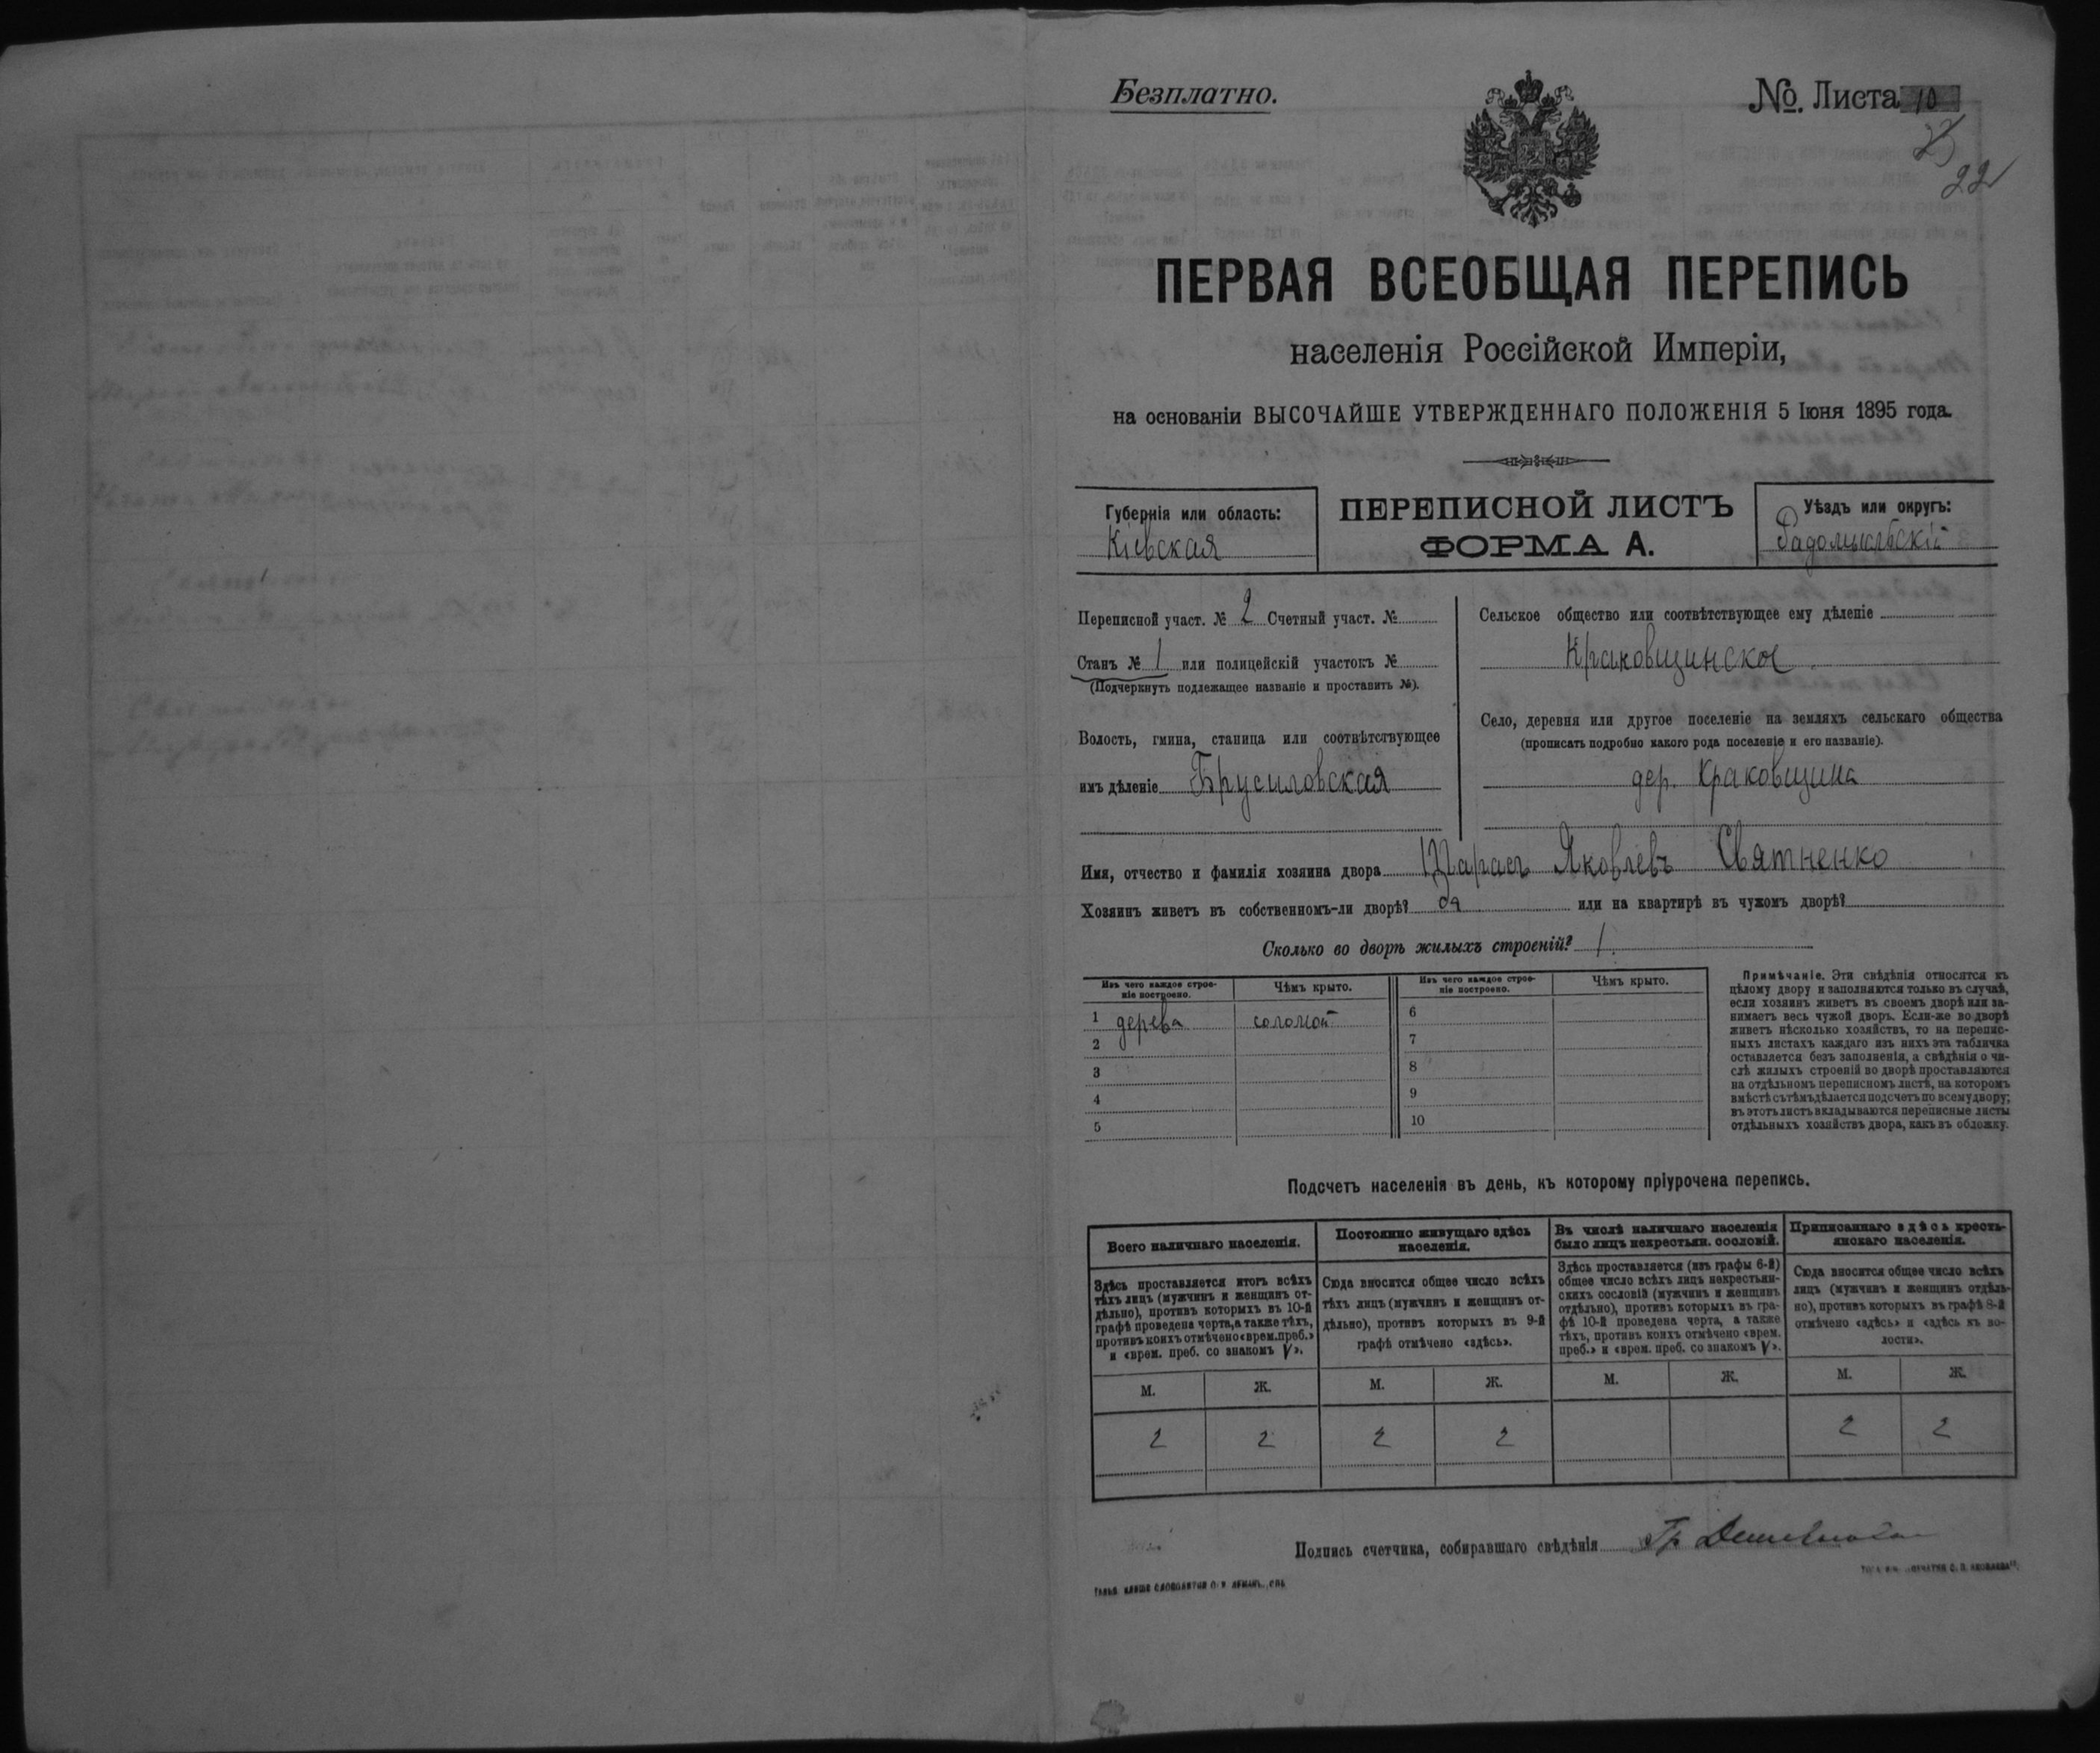 Безплатно.
№. Листа 10
22
ПЕРВАЯ ВСЕОБЩАЯ ПЕРЕПИСЬ
населенія Россійской Имперіи,
на основаніи ВЫСОЧАЙШЕ УТВЕРЖДЕННАГО ПОЛОЖЕНІЯ 5 Іюня 1895 года.
Губернія или область:
Кіевская
ПЕРЕПИСНОЙ ЛИСТЪ
ФОРМА А.
Уѣздъ или округъ:
Радомысльскій
Переписной участ. № 2 Счетный участ. №
Станъ № 1 или полицейскій участокъ №
(Подчеркнуть подлежащее названіе и проставить №).
Волость, гмина, станица или соотвѣтствующее
имъ дѣленіе Брусиловская
Сельское общество или соотвѣтствующее ему дѣленіе
Краковщинское
Село, деревня или другое поселеніе на земляхъ сельскаго общества
(прописать подробно какого рода поселеніе и его названіе).
дер. Краковщина
Имя, отчество и фамилія хозяина двора Тарасъ Яковлевъ Святненко
Хозяинъ живетъ въ собственномъ-ли дворѣ? да или на квартирѣ въ чужомъ дворѣ?
Сколько во дворѣ жилыхъ строеній? 1.
Изъ чего каждое строе-
ніе построено.
Чѣмъ крыто.
Изъ чего каждое строе-
ніе построено.
Чѣмъ крыто.
1 дерева соломой 6
2 7
3 8
4 9
5 10
Примѣчаніе. Эти свѣдѣнія относятся къ
цѣлому двору и заполняются только въ случаѣ,
если хозяинъ живетъ въ своемъ дворѣ или за-
нимаетъ весь чужой дворъ. Если-же во дворѣ
живетъ нѣсколько хозяйствъ, то на перепис-
ныхъ листахъ каждаго изъ нихъ эта табличка
оставляется безъ заполненія, а свѣдѣнія о чи-
слѣ жилыхъ строеній во дворѣ проставляются
на отдѣльномъ переписномъ листѣ, на которомъ
вмѣстѣ съ тѣмъ дѣлается подсчетъ по всему двору;
въ этотъ листъ вкладываются переписные листы
отдѣльныхъ хозяйствъ двора, какъ въ обложку.
Подсчетъ населенія въ день, къ которому пріурочена перепись.
Всего наличнаго населенія.
Постоянно живущаго здѣсь
населенія.
Въ числѣ наличнаго населенія
было лицъ некрестьян. сословій.
Приписаннаго здѣсь кресть-
янскаго населенія.
Здѣсь проставляется итогъ всѣхъ
тѣхъ лицъ (мужчинъ и женщинъ от-
дѣльно), противъ которыхъ въ 10-й
графѣ проведена черта, а также тѣхъ,
противъ коихъ отмѣчено «врем. преб.»
и «врем. преб. со знакомъ V».
Сюда вносится общее число всѣхъ
тѣхъ лицъ (мужчинъ и женщинъ от-
дѣльно), противъ которыхъ въ 9-й
графѣ отмѣчено «здѣсь».
Здѣсь проставляется (изъ графы 6-й)
общее число всѣхъ лицъ некрестьян-
скихъ сословій (мужчинъ и женщинъ
отдѣльно), противъ которыхъ въ гра-
фѣ 10-й проведена черта, а также
тѣхъ, противъ коихъ отмѣчено «врем.
преб.» и «врем. преб. со знакомъ V».
Сюда вносится общее число всѣхъ
лицъ (мужчинъ и женщинъ отдѣль-
но), противъ которыхъ въ графѣ 8-й
отмѣчено «здѣсь» и «здѣсь въ во-
лости».
М. Ж. М. Ж. М. Ж. М. Ж.
2 2 2 2 2 2
Подпись счетчика, собиравшаго свѣдѣнія Гр